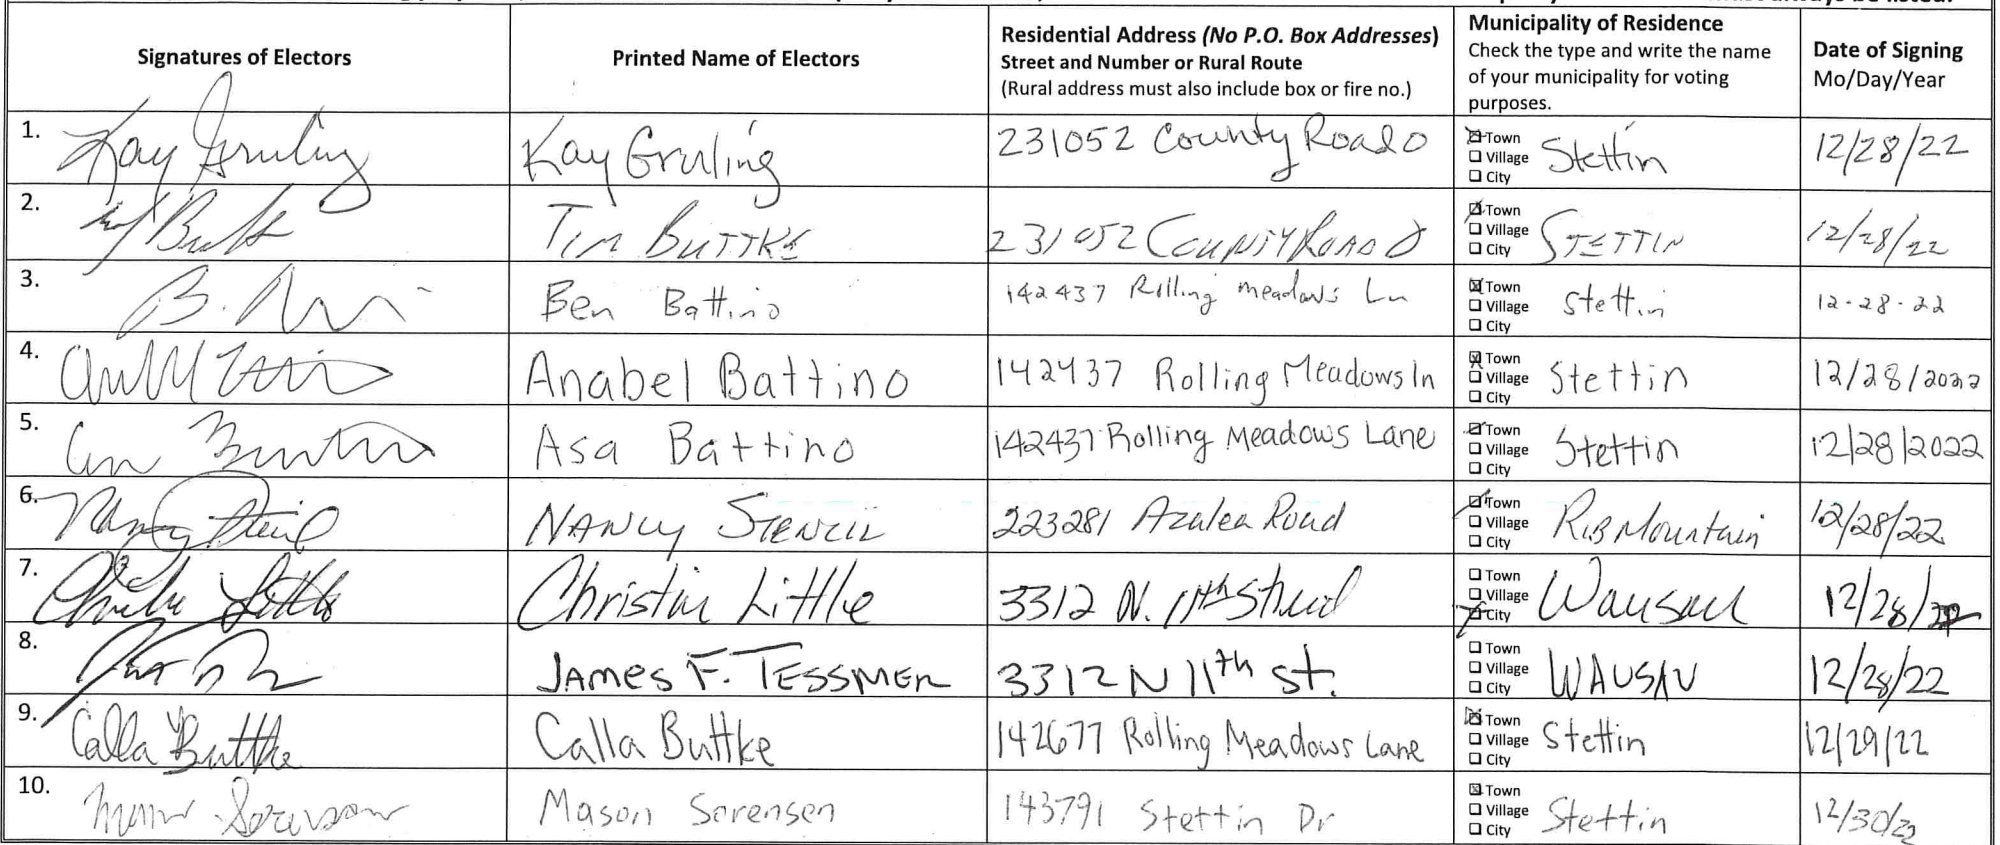 always be listed.
Signatures of Electors
Printed Name of Electors
Residential Address (No P.O. Box Addresses)
Street and Number or Rural Route
(Rural address must also include box or fire no.)
Municipality of Residence
Check the type and write the name
of your municipality for voting
purposes.
Date of Signing
Mo/Day/Year
1. Kay Gruling Kay Gruling 231052 County Road O Town Village City Stettin 12/28/22
2. Tim Buttke 231052 County Road O Town Village City STETTIN 12/28/22
3. Ben Battino 142437 Rolling meadows Ln Town Village City Stettin 12-28-22
4. Anabel Battino 142437 Rolling Meadows ln Town Village City Stettin 12/28/2022
5. Asa Battino 142437 Rolling Meadows Lane Town Village City Stettin 12/28/2022
6. NANCY STENCIL 223281 Azalea Road Town Village City Rib Mountain 12/28/22
7. Christine Little 3312 N. 11th Street Town Village City Wausau 12/28/22
8. JAMES F. TESSMER 3312 N 11th st. Town Village City WAUSAU 12/28/22
9. Calla Buttke Calla Buttke 142677 Rolling Meadows Lane Town Village City Stettin 12/29/22
10. Mason Sorensen Mason Sorensen 143791 Stettin Dr Town Village City Stettin 12/30/22